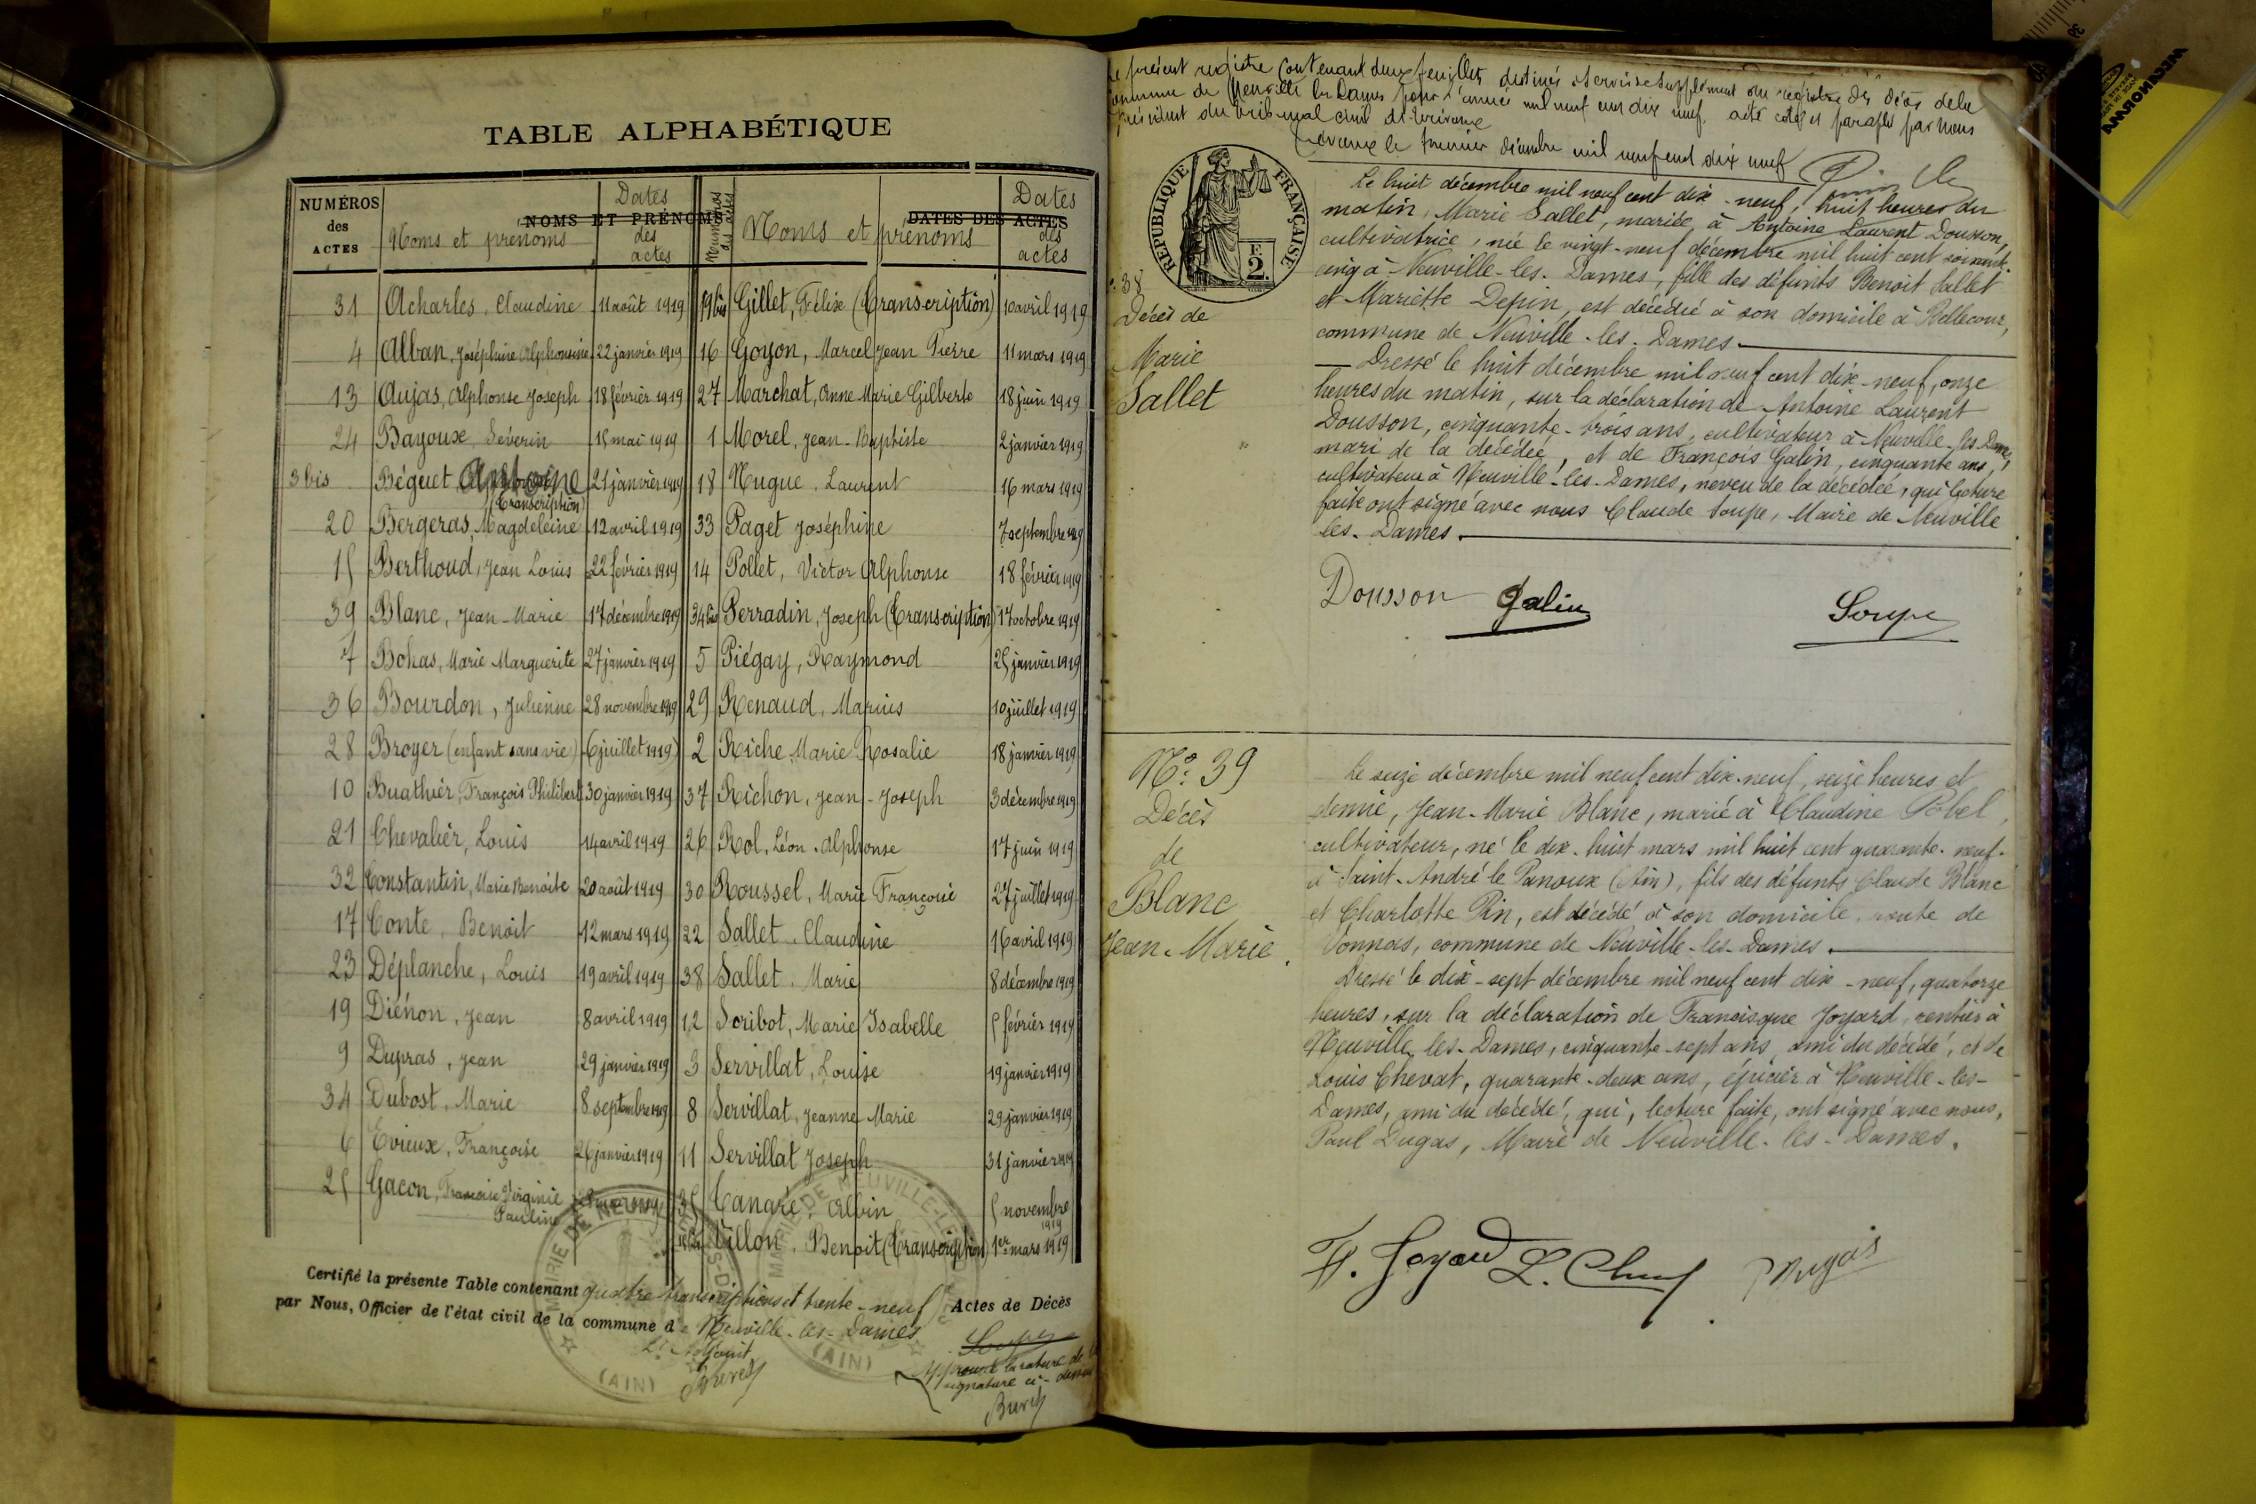 TABLE ALPHABÉTIQUE
NUMÉROS des ACTES
NOMS ET PRÉNOMS
DATES DES ACTES
Noms et prénoms
Dates des actes
Numéros des actes
Noms et prénoms
Dates des actes
31 Acharles, Claudine 11 août 1919
4 Alban, Joséphine Alphonsine 22 janvier 1919
13 Aujas, Alphonse Joseph 18 février 1919
24 Bayoux, Séverin 15 mai 1919
3 bis Béguet Antoine (Transcription) 21 janvier 1919
20 Bergeras, Magdeleine 12 avril 1919
15 Berthoud, Jean Louis 22 février 1919
39 Blanc, Jean-Marie 17 décembre 1919
7 Bohas, Marie Marguerite 27 janvier 1919
36 Bourdon, Julienne 28 novembre 1919
28 Broyer (enfant sans vie) 6 juillet 1919
10 Buathier, François Philibert 30 janvier 1919
21 Chevalier, Louis 14 avril 1919
32 Constantin, Marie Benoite 20 août 1919
17 Conte, Benoit 12 mars 1919
23 Déplanche, Louis 19 avril 1919
19 Diénon, Jean 8 avril 1919
9 Dupras, Jean 29 janvier 1919
34 Dubost, Marie 8 septembre 1919
6 Evieux, Françoise 26 janvier 1919
25 Gacon, Francoise Virginie Pauline
19 bis Gillet, Félix (Transcription) 10 avril 1919
16 Goyon, Marcel Jean Pierre 11 mars 1919
27 Marchat, Anne Marie Gilberte 18 juin 1919
1 Morel, Jean-Baptiste 2 janvier 1919
18 Nugue, Laurent 16 mars 1919
33 Paget Joséphine 7 septembre 1919
14 Pollet, Victor Alphonse 18 février 1919
34 bis Perradin, Joseph (Transcription) 17 octobre 1919
5 Piégay, Raymond 25 janvier 1919
29 Renaud, Marius 10 juillet 1919
2 Riche Marie Rosalie 18 janvier 1919
37 Richon, Jean-Joseph 3 décembre 1919
26 Rol, Léon-Alphonse 17 juin 1919
30 Roussel, Marie Françoise 27 juillet 1919
22 Sallet, Claudine 16 avril 1919
38 Sallet, Marie 8 décembre 1919
12 Scribot, Marie Isabelle 5 février 1919
3 Servillat, Louise 19 janvier 1919
8 Servillat, Jeanne Marie 29 janvier 1919
11 Servillat Joseph 31 janvier 1919
35 Tangré, Albin 5 novembre 1919
Villon, Benoit (Transcription) 1er mars 1919
Certifié la présente Table contenant quatre transcriptions et trente-neuf Actes de Décès
par Nous, Officier de l'état civil de la commune de Neuville-les-Dames
L'Adjoint
Soupe
Approuvé la rature de la
signature ci-dessus
MAIRIE DE NEUVILLE-LES-DAMES (AIN)
MAIRIE DE NEUVILLE-LES-DAMES (AIN)
Le présent registre contenant deux feuillets destinés à servir de supplément au registre des décès de la
commune de Neuville les Dames pour l'année mil neuf cent dix neuf, a été coté et paraphé par nous
président du tribunal civil de Trévoux
Trévoux le premier décembre mil neuf cent dix neuf
RÉPUBLIQUE FRANÇAISE
2 F.
38
Décès de
Marie
Sallet
Le huit décembre mil neuf cent dix-neuf, huit heures du
matin, Marie Sallet, mariée à Antoine Laurent Dousson,
cultivatrice, née le vingt-neuf décembre mil huit cent soixante-
cinq à Neuville-les-Dames, fille des défunts Benoit Sallet
et Mariette Depin, est décédée à son domicile à Bellecour,
commune de Neuville-les-Dames.
Dressé le huit décembre mil neuf cent dix-neuf, onze
heures du matin, sur la déclaration de Antoine Laurent
Dousson, cinquante-trois ans, cultivateur à Neuville-les-Dames,
mari de la décédée, et de François Galin, cinquante ans,
cultivateur à Neuville-les-Dames, neveu de la décédée, qui lecture
faite ont signé avec nous Claude Soupe, Maire de Neuville
les-Dames.
Dousson Galin Soupe
No. 39
Décès
de
Blanc
Jean-Marie.
Le seize décembre mil neuf cent dix-neuf, seize heures et
demie, Jean-Marie Blanc, marié à Claudine Pobel,
cultivateur, né le dix-huit mars mil huit cent quarante-neuf
à Saint-André le Panoux (Ain), fils des défunts Claude Blanc
et Charlotte Pin, est décédé à son domicile, route de
Vonnas, commune de Neuville-les-Dames.
Dressé le dix-sept décembre mil neuf cent dix-neuf, quatorze
heures, sur la déclaration de Francisque Joyard, rentier à
Neuville-les-Dames, cinquante-sept ans, ami du décédé, et de
Louis Chevat, quarante-deux ans, épicier à Neuville-les-
Dames, ami du décédé, qui, lecture faite, ont signé avec nous,
Paul Dugas, Maire de Neuville-les-Dames.
F. Joyard P. Dugas